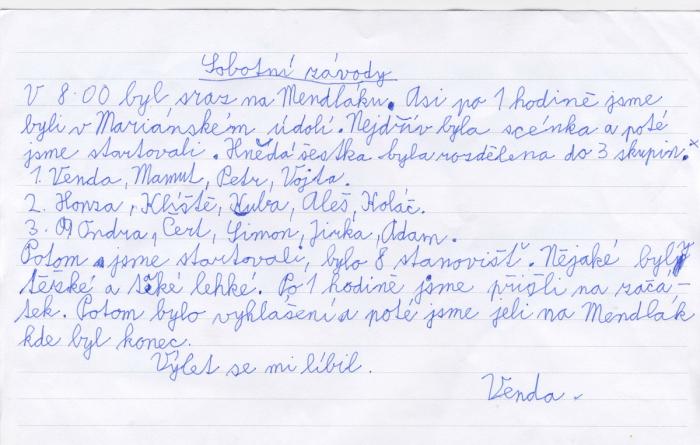 Sobotní závody
V 8.00 byl sraz na Mendláku. Asi po 1 hodině jsme
byli v Mariánském údolí. Nejdřív byla scénka a poté
jsme startovali. Hnědá šestka byla rozdělena do 3 skupin.x
1. Venda, Mamut, Petr, Vojta.
2. Honza, Klíště, Kuba, Aleš, Koláč.
3. Ondra, Čert, Šimon, Jirka, Adam.
Potom jsme startovali, bylo 8 stanovišť. Nějaké byly
těžské a také lehké. Po 1 hodině jsme přišli na začá-
tek. Potom bylo vyhlášení a poté jsme jeli na Mendlák
kde byl konec.
Výlet se mi líbil.
Venda